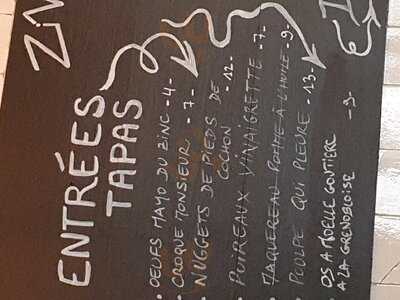 ZiN
ENTRÉES
TAPAS
• OEUFS MAYO DU ZINC -4-
• CROQUE MONSIEUR - 7 -
• NUGGETS DE PIEDS DE
COCHON - 12 -
• POIREAUX VINAIGRETTE -7-
• MAQUEREAU POMME À L'HUILE -9-
• POULPE QUI PLEURE - 13 -
• OS A MOELLE GOUTIERE
A LA GRENOBLOISE - 9 -